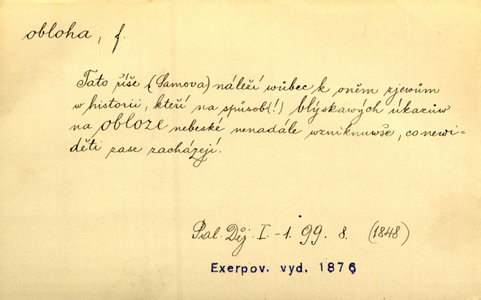 obloha, f.
Tato říše (Samova) náleží vůbec k oněm zjevům
w historii, kteří na spůsob(!) blýskawých úkazůw
na obloze nebeské nenadále wzniknuwše, co newi-
děti zase zacházejí.
Pal. Děj. I.-1. 99. 8. (1848)
Exerpov. vyd. 1876